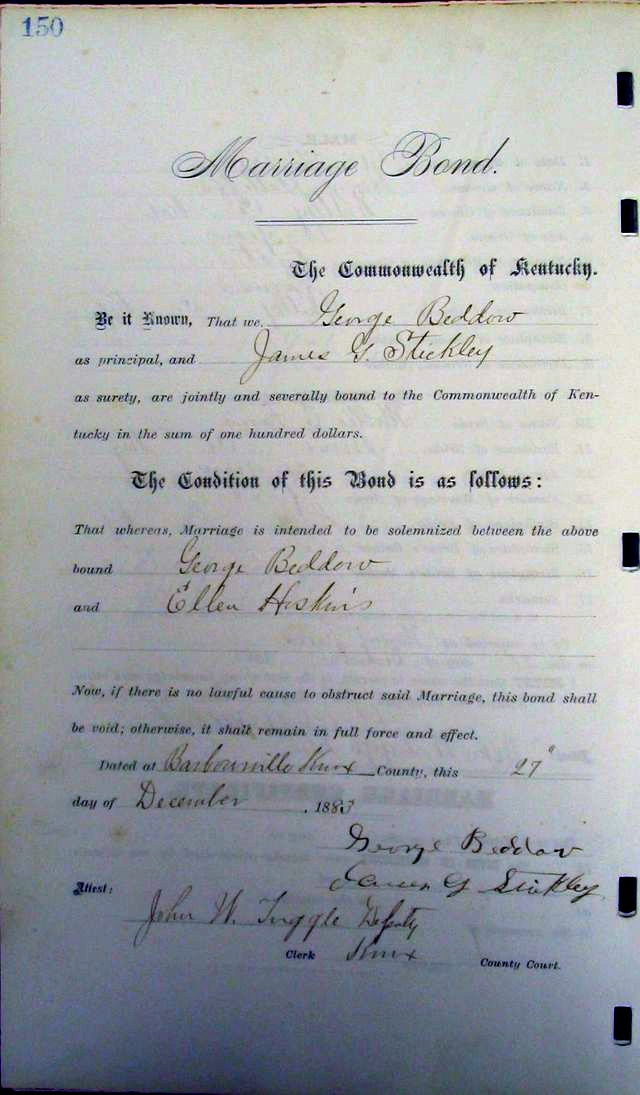 150
Marriage Bond.
The Commonwealth of Kentucky.
Be it Known, That we, George Beddow
as principal, and James G. Stickley
as surety, are jointly and severally bound to the Commonwealth of Ken-
tucky in the sum of one hundred dollars.
The Condition of this Bond is as follows:
That whereas, Marriage is intended to be solemnized between the above
bound George Beddow
and Ellen Hoskins
Now, if there is no lawful cause to obstruct said Marriage, this bond shall
be void; otherwise, it shall remain in full force and effect.
Dated at Barbourville Knox County, this 27"
day of December, 1883
George Beddow
James G Stickley
Attest:
John W. Tuggle Deputy
Clerk Knox County Court.